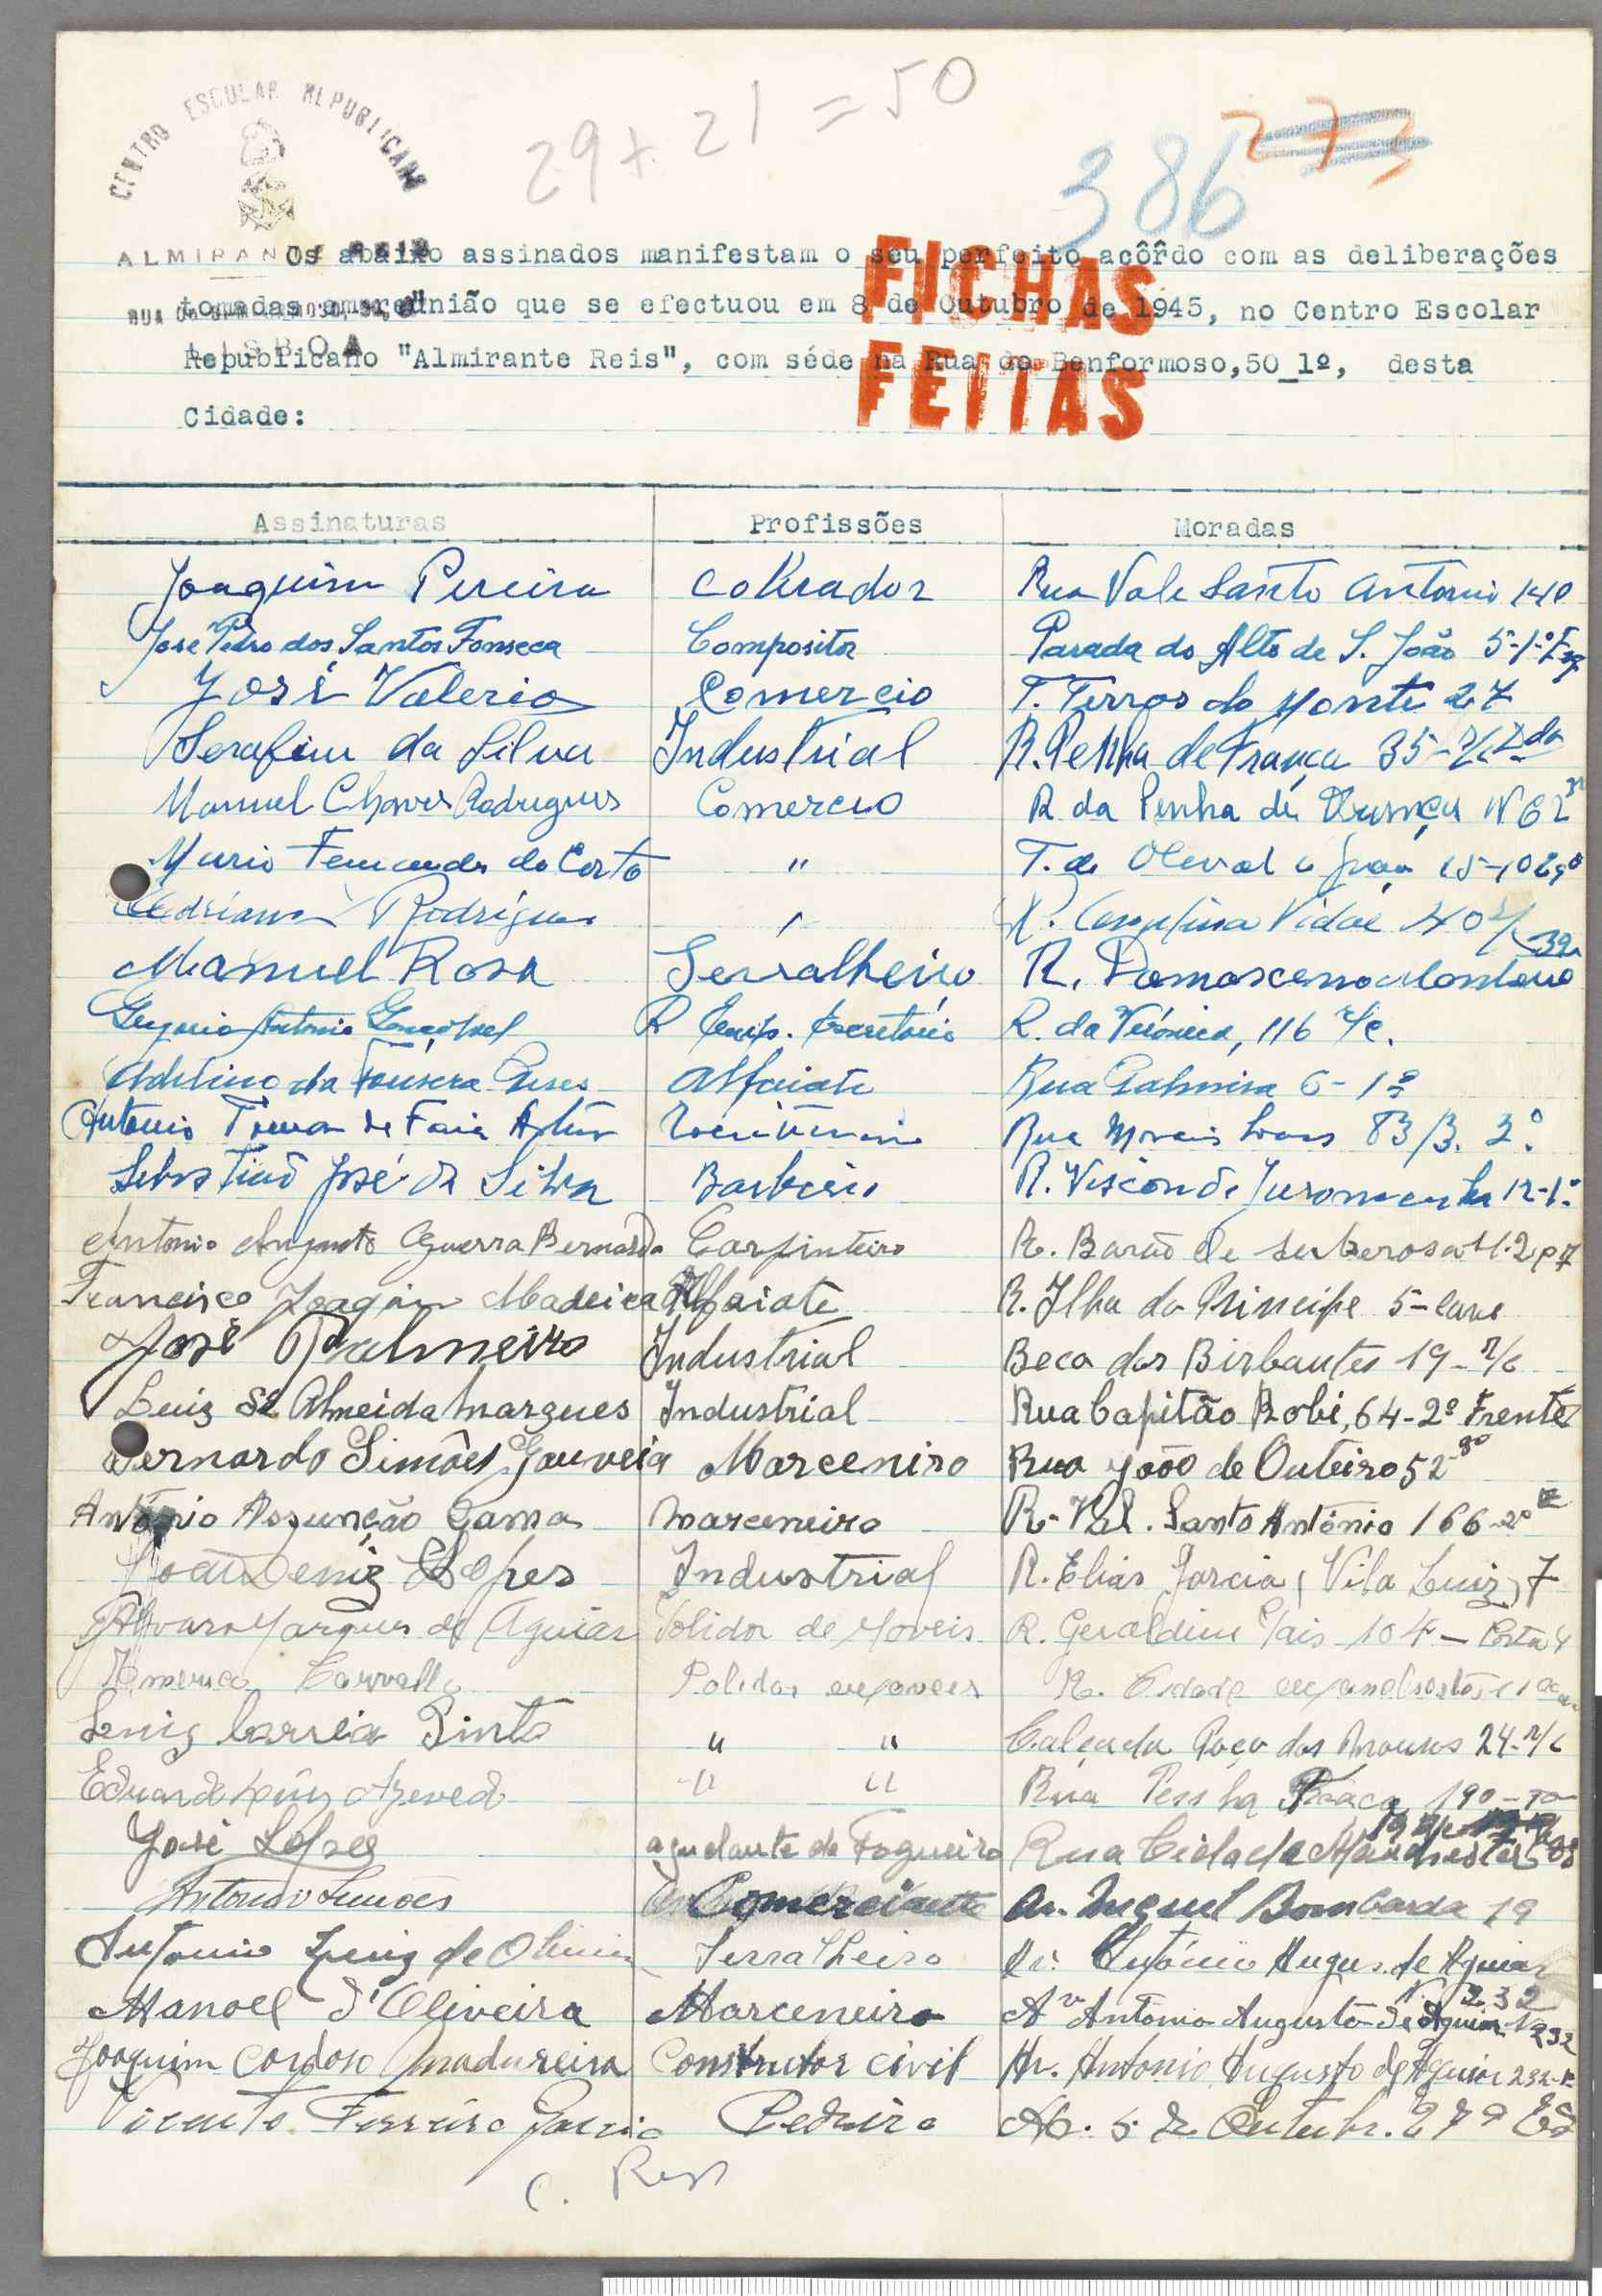 CENTRO ESCOLAR REPUBLICANO
ALMIRANTE REIS
LISBOA
29 + 21 = 50
386
273
Os abaixo assinados manifestam o seu perfeito acôrdo com as deliberações
tomadas em reünião que se efectuou em 8 de Outubro de 1945, no Centro Escolar
Republicano "Almirante Reis", com séde na Rua do Benformoso,50_1º, desta
Cidade:
FICHAS
FEITAS
Assinaturas Profissões Moradas
Joaquim Pereira Cobrador Rua Vale Santo Antonio 140
José Pedro dos Santos Fonseca Compositor Parada do Alto de S. João 5-1º Esq
José Valerio Comercio T. Terras do Monte 27
Serafim da Silva Industrial R. Penha de França 35-r/c Ddo
Manuel Chaves Rodrigues Comercio R da Penha de França Nº 62
Mario Fernandes da Costa " T. do Olival a Graça 15-1º
Adriano Rodrigues " R. Josefina Vidal 40 r/c
Manuel Rosa Serralheiro R. Damasceno Monteiro 39
Gregorio Antonio Emp. Escritório R. da Verónica, 116 r/c.
Adelino da Fonseca Alfaiate Rua Palmira 6-1º
Antonio de Faria Artur Rua Morais Soares 83/B. 3º
Sebastião José da Silva Barbeiro R. Visconde Juromenha 12-1º
Antonio Augusto Guerra Bernardo Carpinteiro R. Barão de Sabrosa
Francisco Joaquim Madeira Alfaiate R. Ilha do Principe 5-cave
José Palmeiro Industrial Beco dos Birbantes 19-r/c
Luiz de Almeida Marques Industrial Rua Capitão Robi, 64-2º Frente
Bernardo Simões Gouveia Marceneiro Rua João de Outeiro 52
António Assunção Gama Marceneiro R. Val. Santo António 166-2º E
João Deniz Lopes Industrial R. Elias Garcia (Vila Luiz) 7
Alvaro Marques de Aguiar Polidor de Moveis R. Geraldine Pais 104 - Porta 4
Americo Carvalho Polidor de moveis R. Cidade
Luiz Correia Pinto " " Calçada Poço dos Mouros 24-r/c
Eduardo Luiz Azevedo " " Rua Penha França 190
José Lopes ajudante de Fogueiro Rua Cidade Manchester
Antonio Simões Comerciante Av. Miguel Bombarda 19
Antonio Luiz de Oliveira Serralheiro Av. António Augus. de Aguiar
N. 232
Manoel d'Oliveira Marceneiro Av Antonio Augusto de Aguiar 232
Joaquim Cardoso Madureira Construtor civil Av. Antonio Augusto de Aguiar 232
Vicente Ferreira Garcia Pedreiro Av. 5 de Outubr. 279
C. Reis